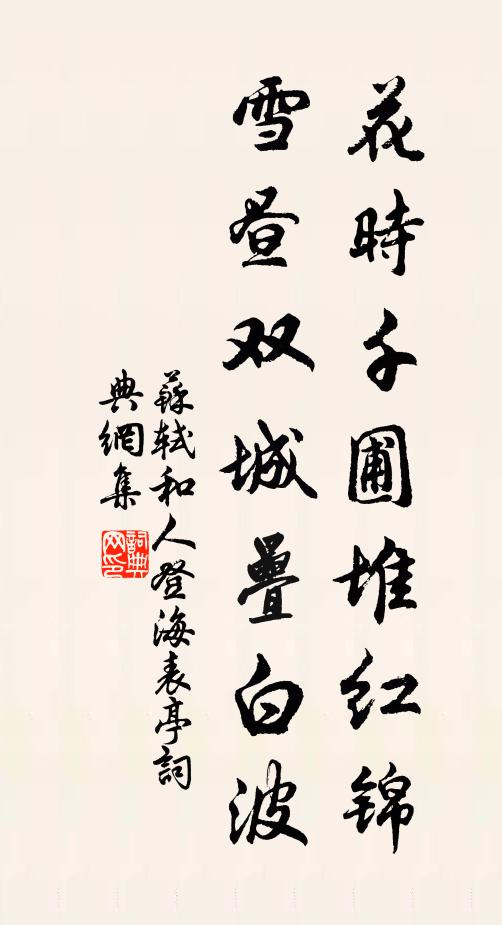 花時千圃堆红锦
雪昼双城疊白波
蘇軾和人登海表亭詞
典網集
詞典
网印